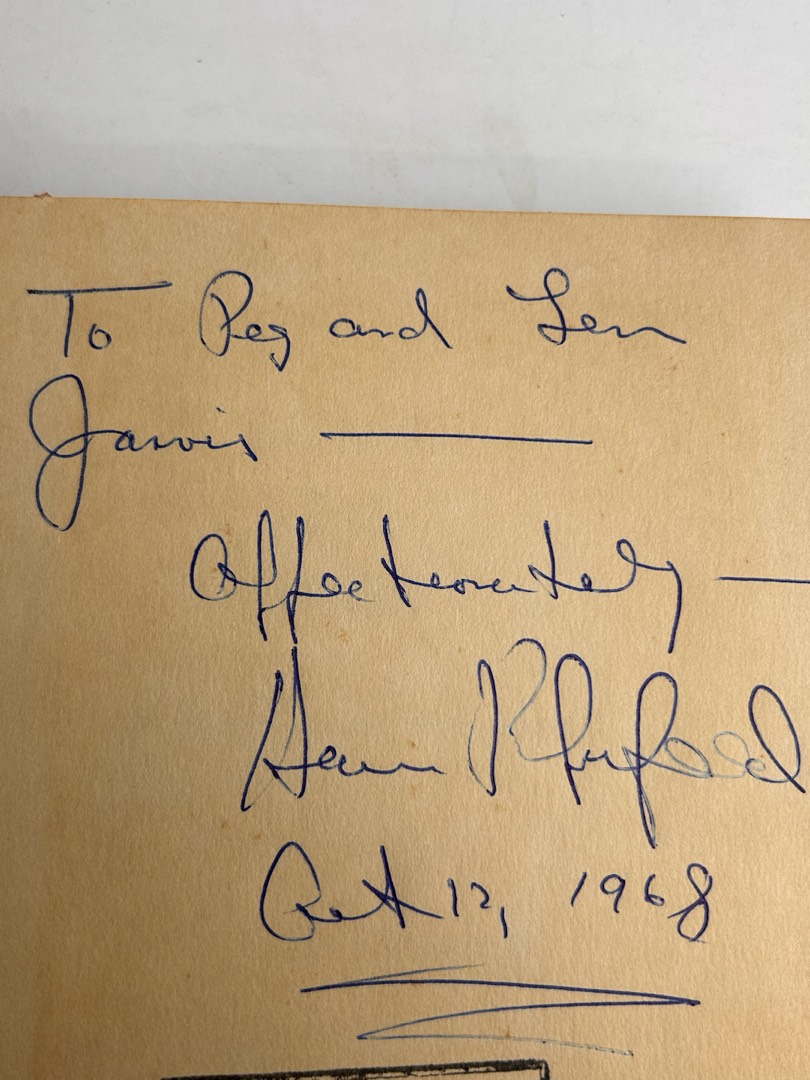 To Peg and Len
Jarvis —
Affectionately —
Oct 12, 1968